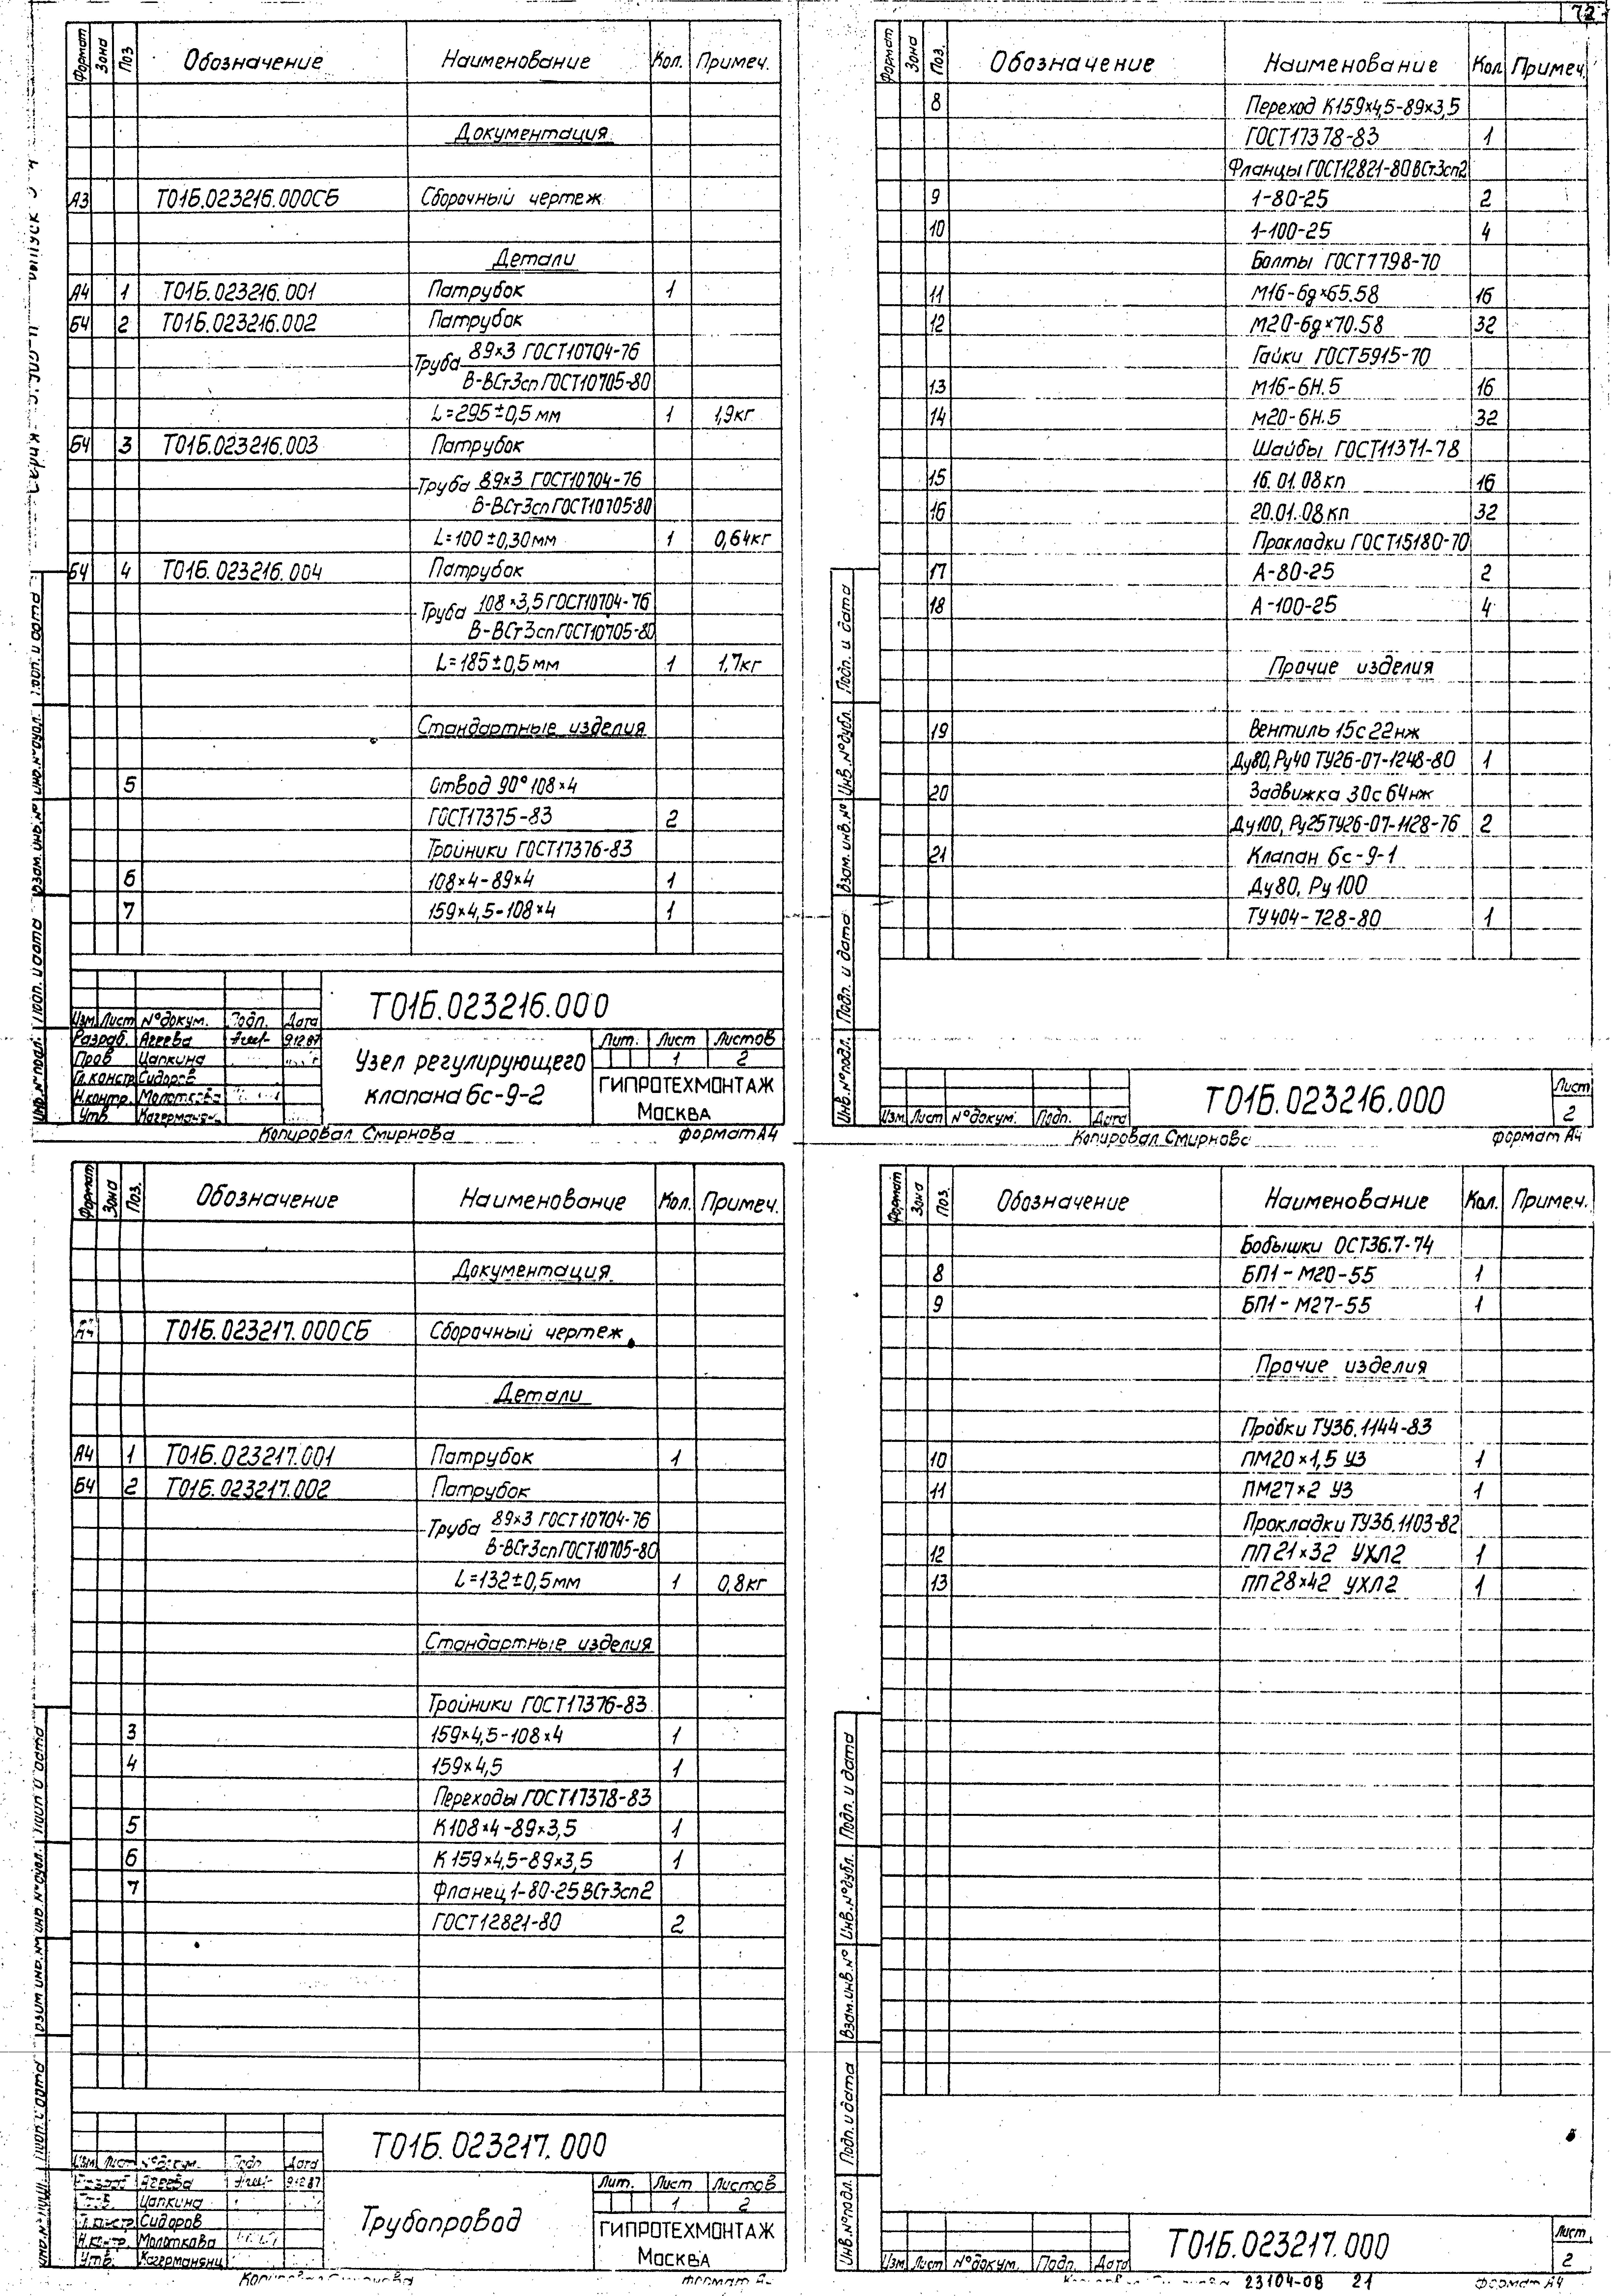 72
Формат Зона Поз Обозначение Наименование Кол. Примеч.
Документация
А3 Т01Б.023216.000СБ Сборочный чертеж
Детали
А4 1 Т01Б.023216.001 Патрубок 1
Б4 2 Т01Б.023216.002 Патрубок
Труба 89×3 ГОСТ10704-76
В-ВСт3сп ГОСТ10705-80
L=295±0,5 мм 1 1,9кг
Б4 3 Т01Б.023216.003 Патрубок
Труба 89×3 ГОСТ10704-76
В-ВСт3сп ГОСТ10705-80
L=100±0,30мм 1 0,64кг
Б4 4 Т01Б.023216.004 Патрубок
Труба 108×3,5 ГОСТ10704-76
В-ВСт3сп ГОСТ10705-80
L=185±0,5 мм 1 1,7кг
Стандартные изделия
5 Отвод 90° 108×4
ГОСТ17375-83 2
Тройники ГОСТ17376-83
6 108×4-89×4 1
7 159×4,5-108×4 1
Т01Б.023216.000
Изм Лист №докум. Подп. Дата
Разраб. Агеева 91287
Пров Цапкина
Гл.констр Сидоров
Н.контр. Молоткова
Утв.
Узел регулирующего
клапана 6с-9-2
Лит. Лист Листов
1 2
ГИПРОТЕХМОНТАЖ
Москва
Копировал Смирнова формат А4
Формат Зона Поз. Обозначение Наименование Кол Примеч.
8 Переход К159×4,5-89×3,5
ГОСТ17378-83 1
Фланцы ГОСТ12821-80ВСт3сп2
9 1-80-25 2
10 1-100-25 4
Болты ГОСТ7798-70
11 М16-6g×65.58 16
12 М20-6g×70.58 32
Гайки ГОСТ5915-70
13 М16-6Н.5 16
14 М20-6Н.5 32
Шайбы ГОСТ11371-78
15 16.01.08кп 16
16 20.01.08кп 32
Прокладки ГОСТ15180-70
17 А-80-25 2
18 А-100-25 4
Прочие изделия
19 Вентиль 15с22нж
Ду80,Ру40 ТУ26-07-1248-80 1
20 Задвижка 30с64нж
Ду100, Ру25ТУ26-07-1128-76 2
21 Клапан 6с-9-1
Ду80, Ру100
ТУ404-728-80 1
Инв.№подл. Подп. и дата Взам.инв.№ Инв.№дубл. Подп. и дата
Изм Лист №докум. Подп. Дата
Т01Б.023216.000
Лист
2
Копировал Смирнова формат А4
Формат Зона Поз. Обозначение Наименование Кол. Примеч.
Документация
А4 Т01Б.023217.000СБ Сборочный чертеж
Детали
А4 1 Т01Б.023217.001 Патрубок 1
Б4 2 Т01Б.023217.002 Патрубок
Труба 89×3 ГОСТ10704-76
В-ВСт3сп ГОСТ10705-80
L=132±0,5мм 1 0,8кг
Стандартные изделия
Тройники ГОСТ17376-83
3 159×4,5-108×4 1
4 159×4,5 1
Переходы ГОСТ17378-83
5 К108×4-89×3,5 1
6 К159×4,5-89×3,5 1
7 Фланец 1-80-25ВСт3сп2
ГОСТ12821-80 2
Т01Б.023217.000
Изм Лист №докум. Подп Дата
Агеева 91287
Цапкина
Сидоров
Н.контр. Молоткова
Утв.
Трубопровод
Лит. Лист Листов
1 2
ГИПРОТЕХМОНТАЖ
Москва
Формат Зона Поз. Обозначение Наименование Кол. Примеч.
Бобышки ОСТ36.7-74
8 БП1-М20-55 1
9 БП1-М27-55 1
Прочие изделия
Пробки ТУ36.1144-83
10 ПМ20×1,5 У3 1
11 ПМ27×2 У3 1
Прокладки ТУ36.1103-82
12 ПП21×32 УХЛ2 1
13 ПП28×42 УХЛ2 1
Инв.№подл. Подп. и дата Взам.инв.№ Инв.№дубл. Подп. и дата
Изм Лист №докум. Подп. Дата
Т01Б.023217.000
Лист
2
23104-08 21 формат А4